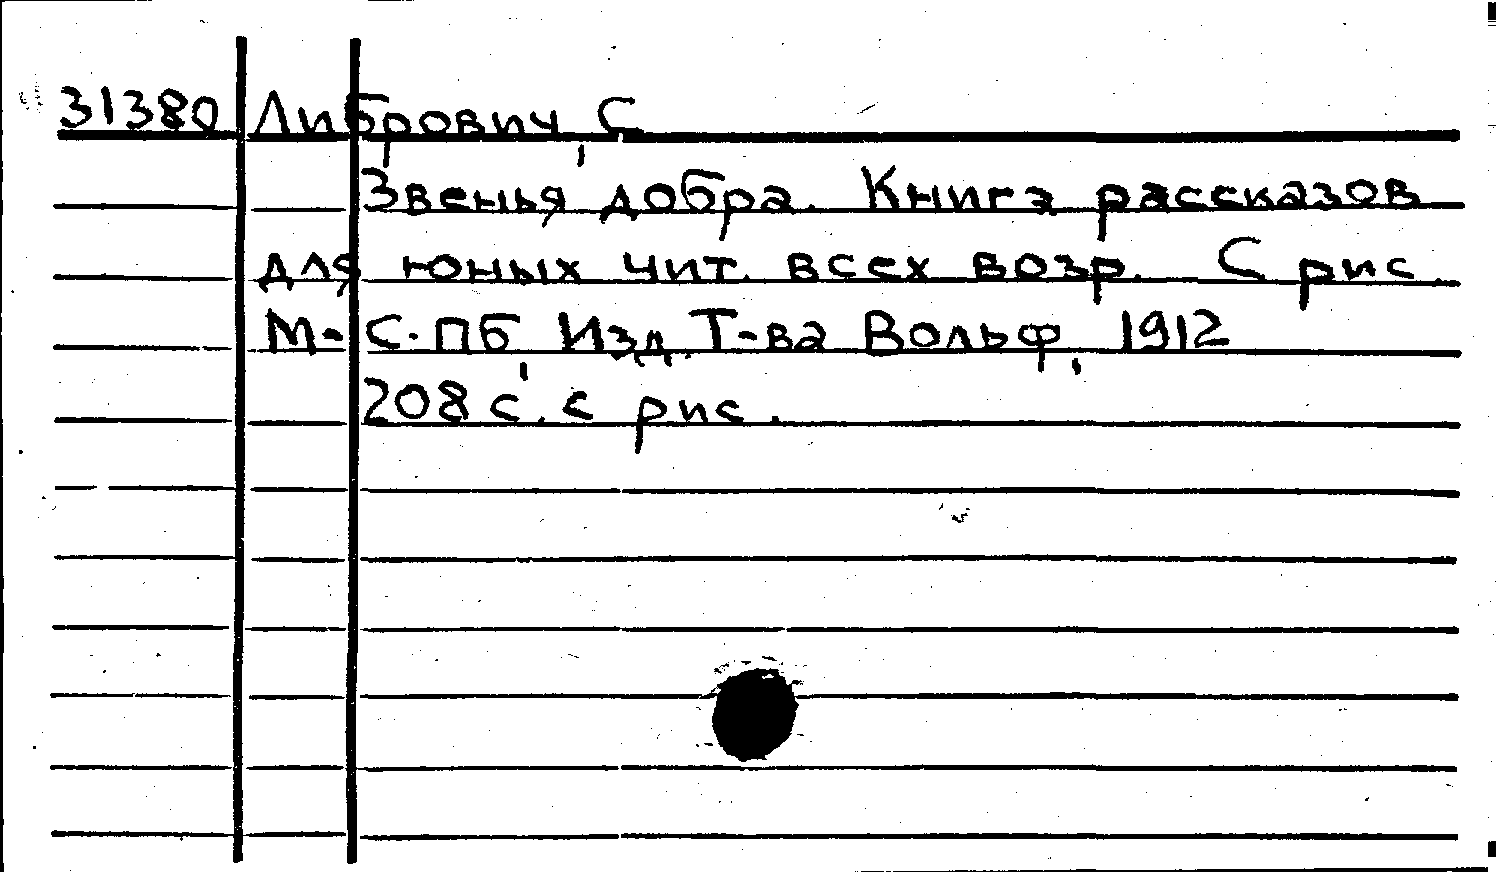 31380 Либрович, С
Звенья добра. Книга рассказов
для юных чит. всех возр. С рис.
М.-С.-Пб, Изд. Т-ва Вольф, 1912
208 с. с рис.